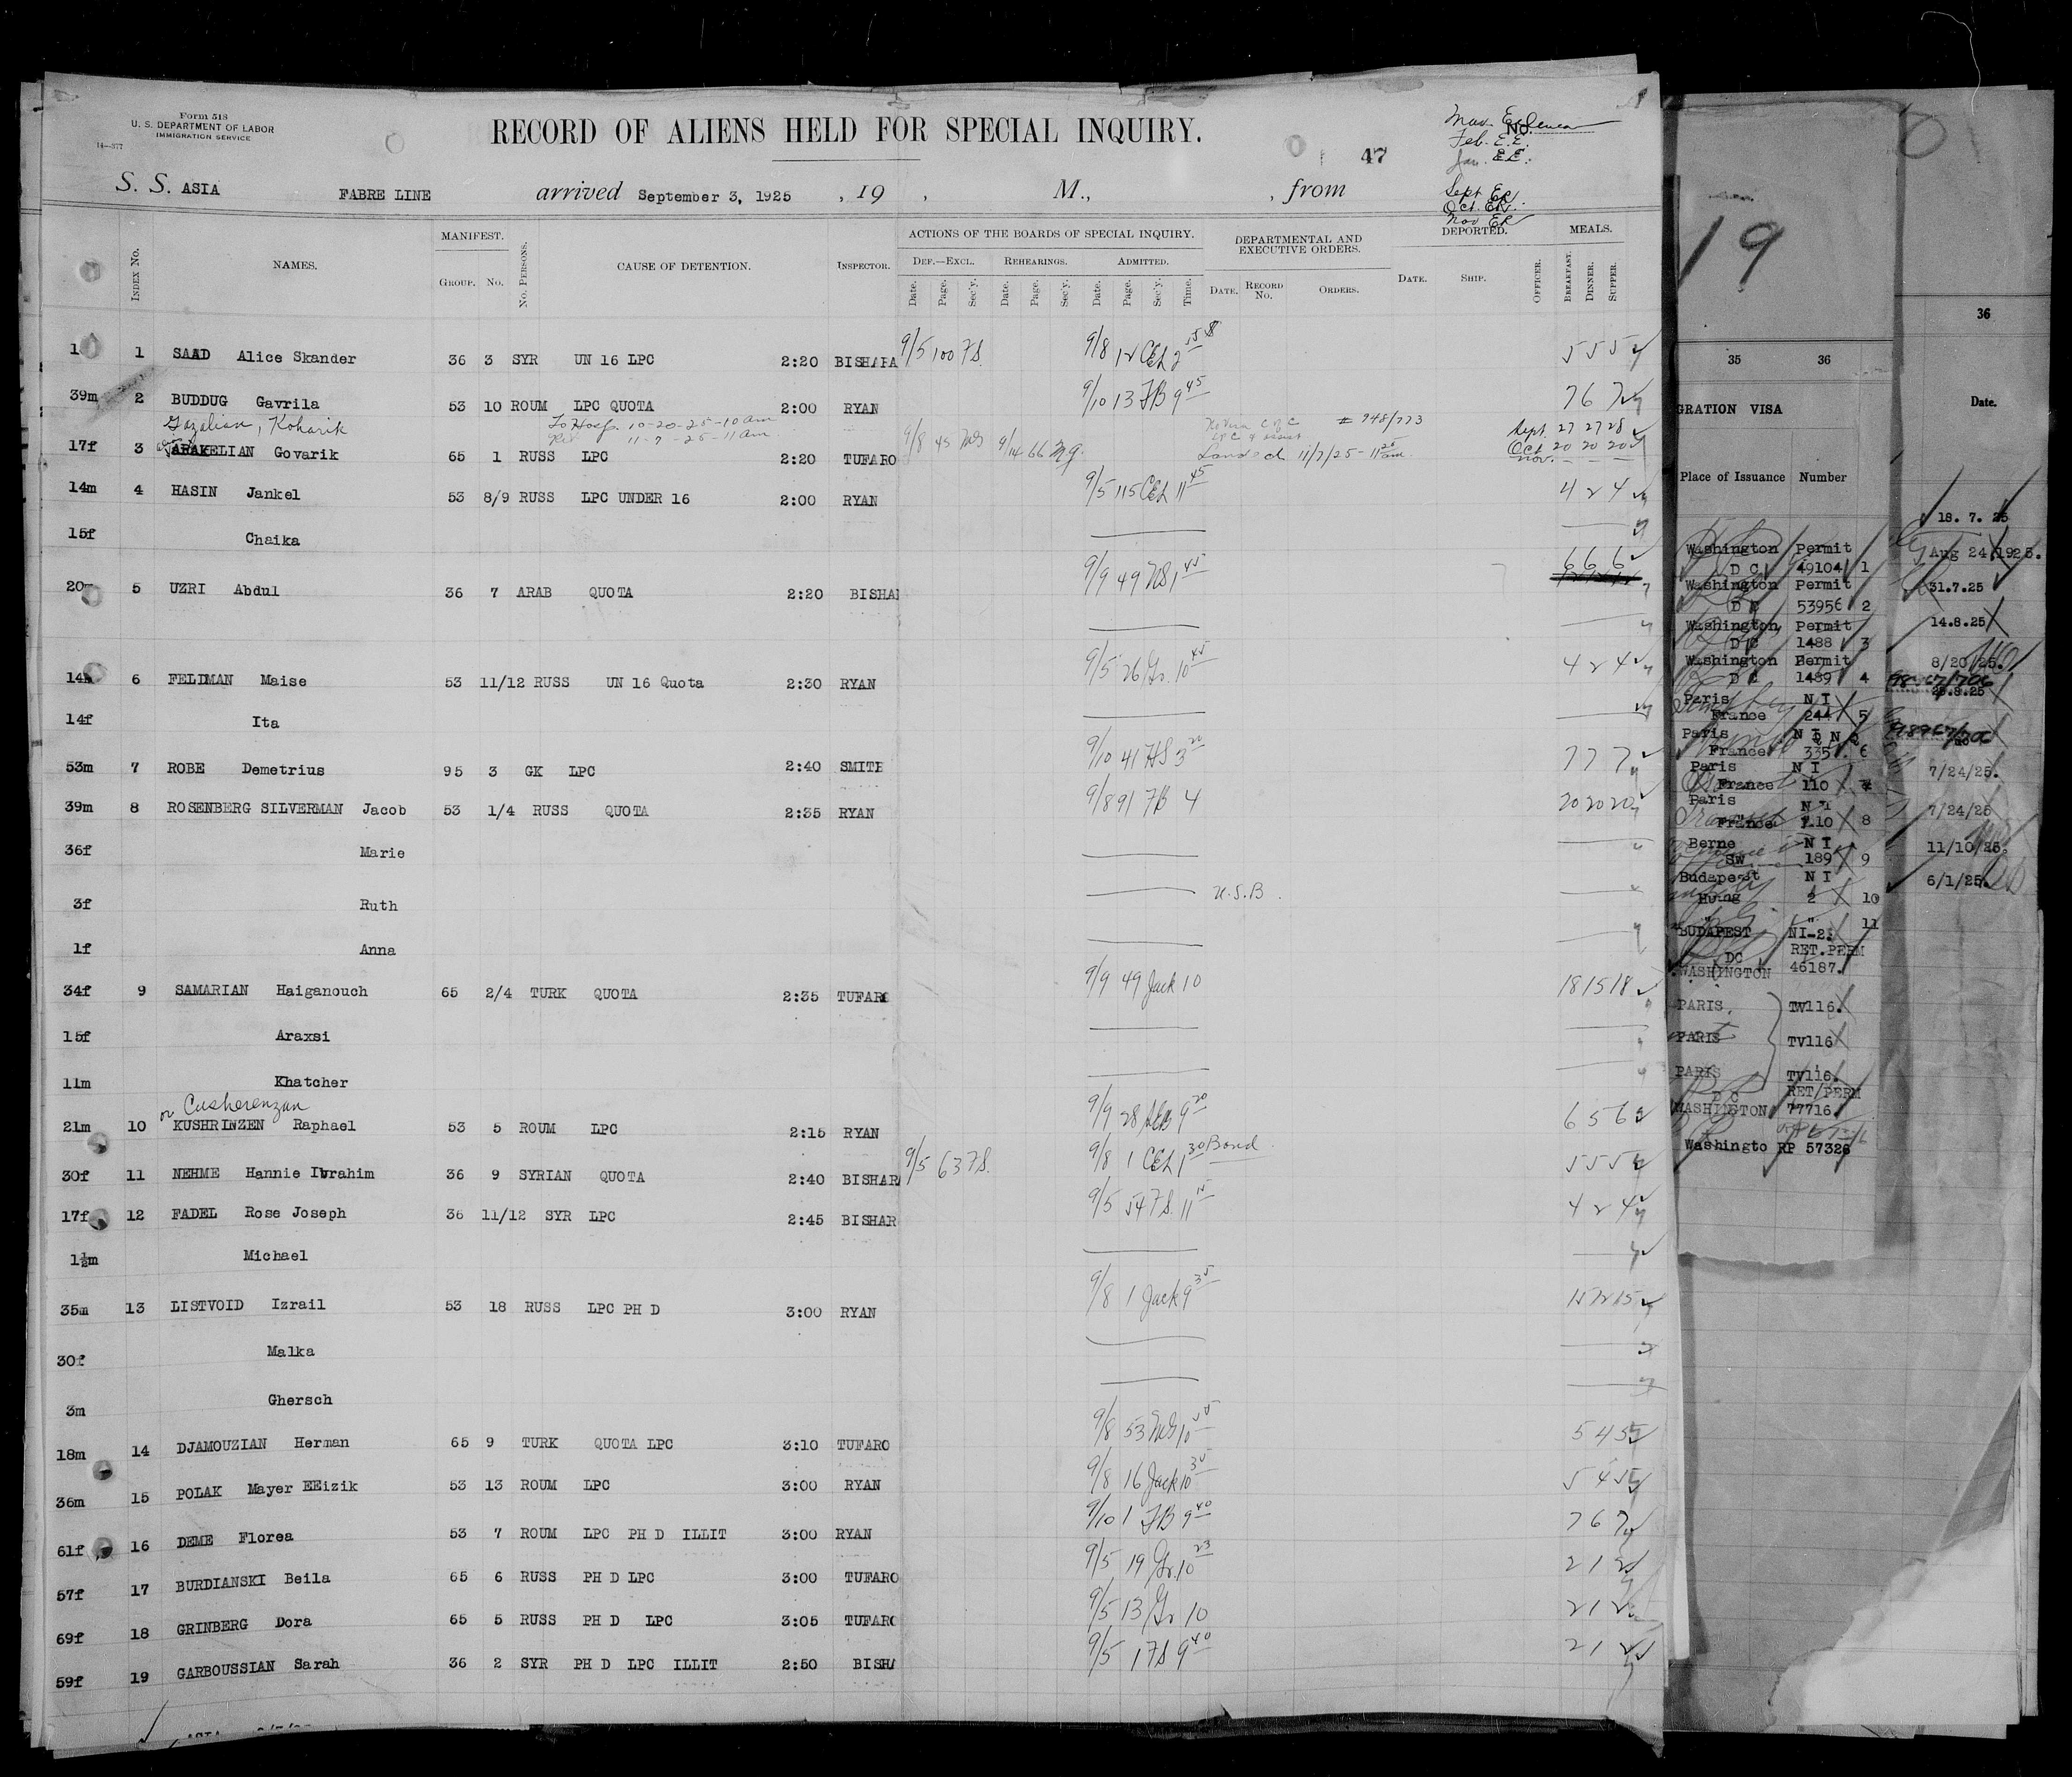 Form 518
U. S. DEPARTMENT OF LABOR
IMMIGRATION SERVICE
14—377
RECORD OF ALIENS HELD FOR SPECIAL INQUIRY.
No.
47
Feb. E.E.
Jan. E.E.
Sept ER
Oct. ER.
Nov ER
S. S. ASIA FABRE LINE arrived September 3, 1925 , 19 , M., , from
Index No. NAMES. MANIFEST. Group. No. No. Persons. CAUSE OF DETENTION. Inspector. ACTIONS OF THE BOARDS OF SPECIAL INQUIRY. Def.—Excl. Rehearings. Admitted. Date. Page. Sec'y. Date. Page. Sec'y. Date. Page. Sec'y. Time. DEPARTMENTAL AND EXECUTIVE ORDERS. Date. Record No. Orders. DEPORTED. Date. Ship. Officer. MEALS. Breakfast. Dinner. Supper.
1 SAAD Alice Skander 36 3 SYR UN 16 LPC 2:20 BISHARA 9/5 100 9/8 5 5 5
39m 2 BUDDUG Gavrila 53 10 ROUM LPC QUOTA 2:00 RYAN 9/10 13 FB 9 45 7 6 7
Gazalian, Koharik To Hosp. 10-20-25-10 am # 948/773 Sept. 27 27 28
11-7-25-11 am
17f 3 ARAKELIAN Govarik 65 1 RUSS LPC 2:20 TUFARO 9/8 45 9/14 66 Landed 11/7/25-11 am. Oct 20 20 20
Nov. — — —
14m 4 HASIN Jankel 53 8/9 RUSS LPC UNDER 16 2:00 RYAN 9/5 115 CEL 11 45 4 2 4
15f Chaika
20m 5 UZRI Abdul 36 7 ARAB QUOTA 2:20 BISHA 9/9 49 1 45 6 6 6
14m 6 FELDMAN Maise 53 11/12 RUSS UN 16 Quota 2:30 RYAN 9/5 26 Gr. 10 45 4 2 4
14f Ita
53m 7 ROBE Demetrius 95 3 GK LPC 2:40 SMITH 9/10 41 HS 3 20 7 7 7
39m 8 ROSENBERG SILVERMAN Jacob 53 1/4 RUSS QUOTA 2:35 RYAN 9/8 91 FB 4 20 20 20
36f Marie
3f Ruth U.S.B.
1f Anna
34f 9 SAMARIAN Haiganouch 65 2/4 TURK QUOTA 2:35 TUFARO 9/9 49 Jack 10 18 15 18
15f Araxsi
11m Khatcher
or Cusherenzan
21m 10 KUSHRINZEN Raphael 53 5 ROUM LPC 2:15 RYAN 9/9 28 9 20 6 5 6
30f 11 NEHME Hannie Ibrahim 36 9 SYRIAN QUOTA 2:40 BISHAR 9/5 63 9/8 1 CEL 1 30 Bond 5 5 5
17f 12 FADEL Rose Joseph 36 11/12 SYR LPC 2:45 BISHAR 9/5 54 11 15 4 2 4
1½m Michael
35m 13 LISTVOID Izrail 53 18 RUSS LPC PH D 3:00 RYAN 9/8 1 Jack 9 35
30f Malka
3m Ghersch
18m 14 DJAMOUZIAN Herman 65 9 TURK QUOTA LPC 3:10 TUFARO 9/8 53 5 4 5
36m 15 POLAK Mayer EEizik 53 13 ROUM LPC 3:00 RYAN 9/8 16 Jack 10 35 5 4 5
61f 16 DEME Florea 53 7 ROUM LPC PH D ILLIT 3:00 RYAN 9/10 1 FB 9 40 7 6 7
57f 17 BURDIANSKI Beila 65 6 RUSS PH D LPC 3:00 TUFARO 9/5 19 Gr. 10 23 2 1 2
69f 18 GRINBERG Dora 65 5 RUSS PH D LPC 3:05 TUFARO 9/5 13 Gr 10 2 1 2
59f 19 GARBOUSSIAN Sarah 36 2 SYR PH D LPC ILLIT 2:50 BISHA 9/5 1 9 40 2 1 2
19
36
35 36
GRATION VISA Date.
Place of Issuance Number
18. 7. 25
Washington Permit Aug 24 1925.
D C 49104 1
Washington Permit 31.7.25
D C 53956 2
Washington Permit 14.8.25
D C 1488 3
Washington Permit 8/20/25.
D C 1489 4
Paris N I 25.8.25
France 244 5
Paris N I Q N Q
France 335 6
Paris N I 7/24/25.
France 110
Paris N I 7/24/25
France 110 8
Berne N I 11/10/25.
Sw 189 9
Budapest N I 6/1/25.
Hung 2 10
" " 11
BUDAPEST NI-2.
DC RET.PERM
WASHINGTON 46187.
PARIS. TV116.
PARIS TV116
PARIS TV116.
D C RET/PERM
WASHINGTON 77716.
Washingto RP 57326